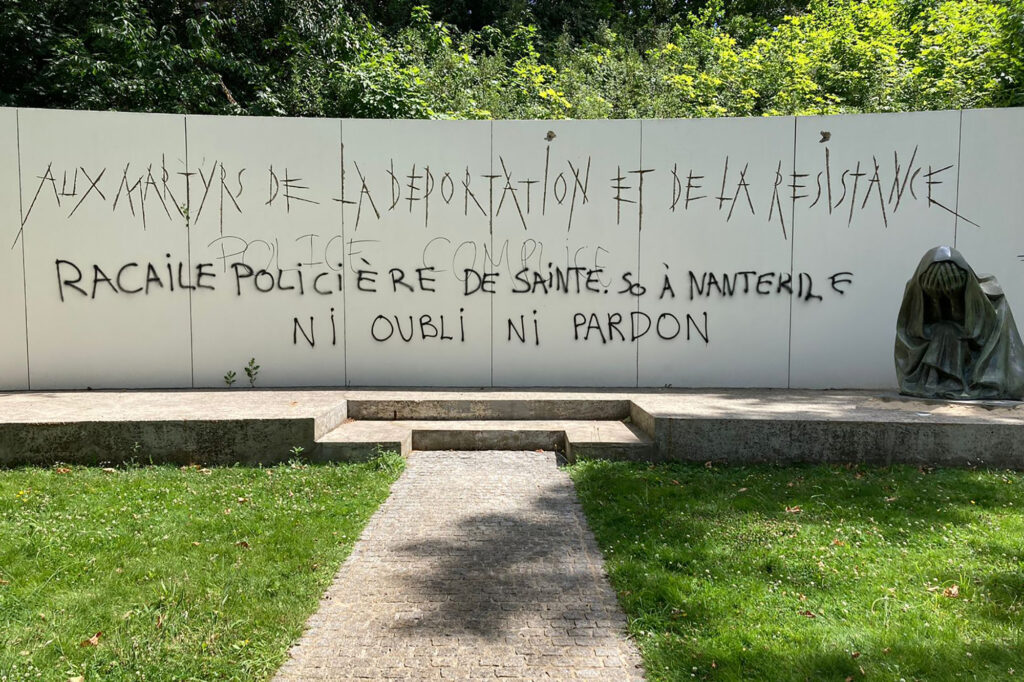 AUX MARTYRS DE LA DÉPORTATION ET DE LA RÉSISTANCE
POLICE COMPLICE
RACAILE POLICIÈRE DE SAINTE. So À NANTERILE
Ni OUBLi Ni PARDON